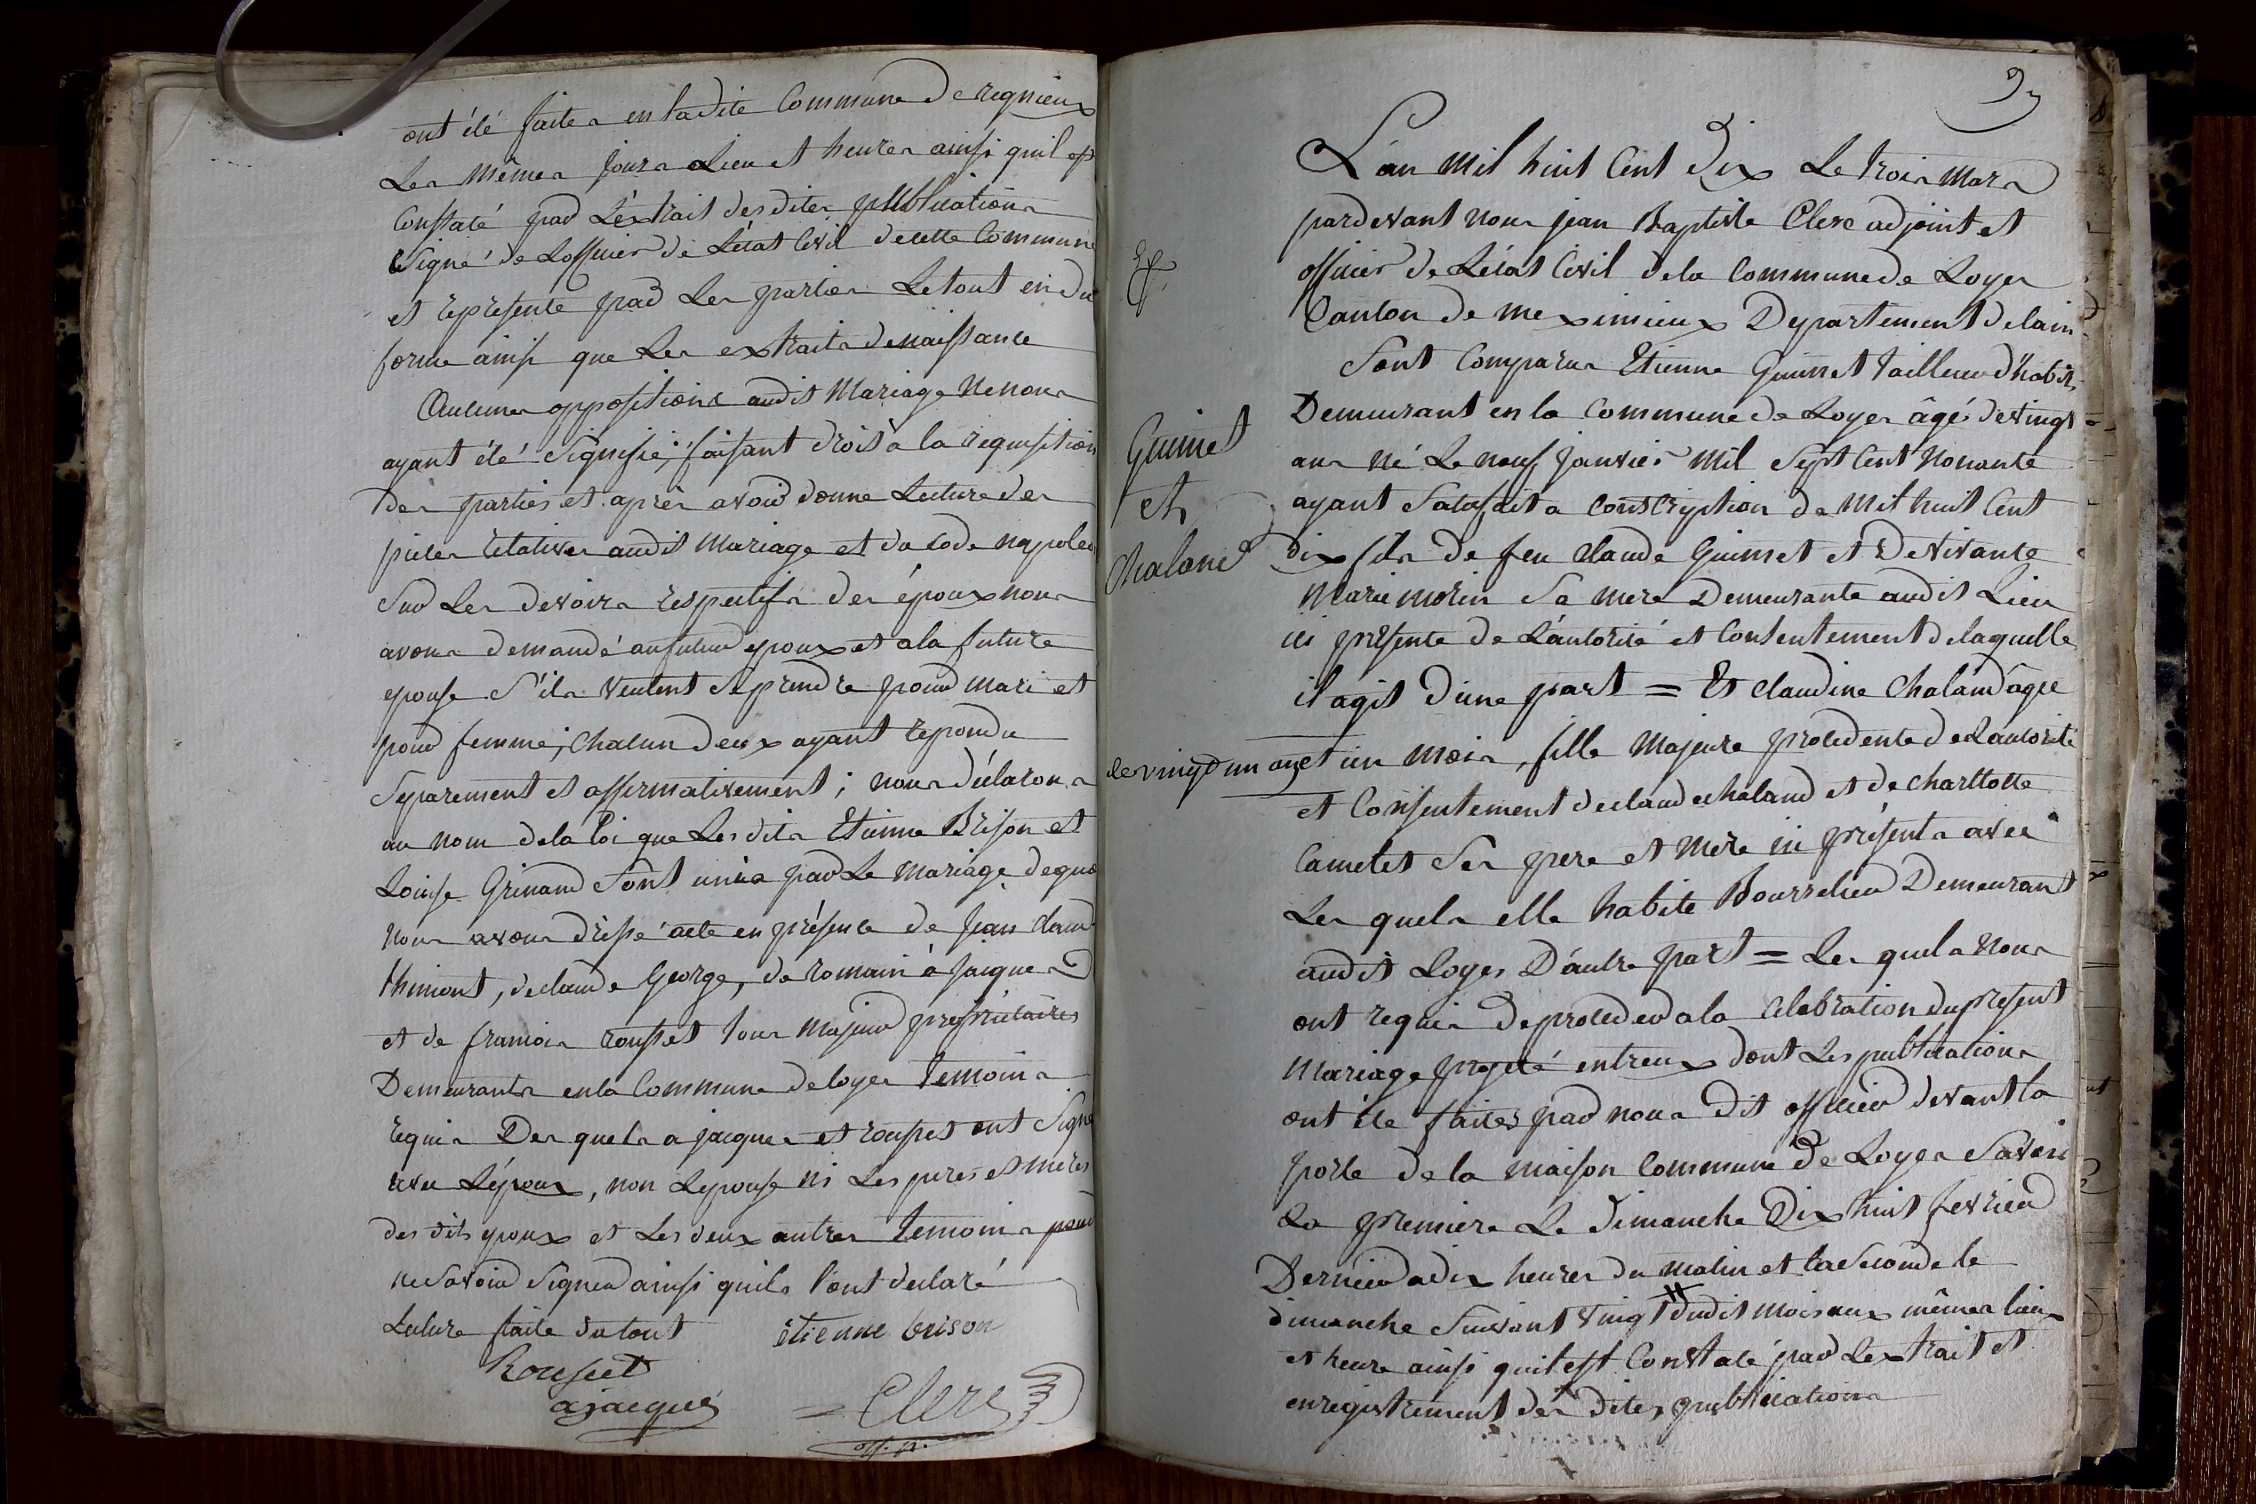 ont été faites en ladite Commune de regnieux
Les mêmes jours Lieu et heures ainsi quil est
Constaté par L'extrait desdites publications
Signé de Lofficier de L'état Civil decette Commune
et représenté par Les parties Letout en due
forme ainsi que Les extraits denaissance
Aucunes oppositions audit Mariage Nenous
ayant été Signifié; faisant droit a la requisition
Des parties et après avoir donné Lecture des
pièces relatives audit Mariage et du Code napoleon
Sur Les devoirs respectifs des époux nous
avons demandé aufutur epoux et ala future
epouse S'ils veulent Seprendre pour mari et
pour femme; chacun deux ayant repondu
Separement et affirmativement; nous déclarons
au nom dela loi que Lesdits Etienne Brison et
Louise Grinand Sont unis par Le mariage dequoi
Nous avons dressé acte en présence de jean claude
thimont, declaude George, de romain ajacques
et de francois rousset tous majeurs propriétaires
Demeurants enla Commune deloyes temoins
requis Des quels ajacques et rousset ont Signé
avec L'époux, non Lepouse ni Les peres et meres
des dits epoux et Les deux autres temoins pour
ne Savoir Signer ainsi quils l'ont declaré
Lecture faite du tout étienne brison
Rousset
ajacques
Clerc
off. p.
L'an Mil huit Cent Dix Le trois Mars
pardevant nous jean Baptiste Clerc adjoint et
officier de L'état Civil dela Commune de Loyes
Canton de meximieux Département delain
Sont Comparus Etienne Guinet tailleur d'habits
Demeurant en la Commune de Loyes âgé devingt
Guinet
et
Chaland
ans né Le neuf janvier mil Sept Cent Nonante
ayant Satisfait a Conscription de Mil huit Cent
dix fils de feu Claude Guinet et Devivante
Marie morin Sa mere Demeurante audit Lieu
ici présente de L'autorité et Consentement delaquelle
il agit D'une part = Et claudine Chaland âgée
de vingt un ans et un mois, fille Majeure procedente de Lautorité
et Consentement declaude chaland et de charlotte
Camelet Ses pere et Mere ici présents avec
Les quels elle habite Bourrelier Demeurant
audit Loyes D'autre part = Les quels Nous
ont requis Deproceder ala Célébration duprésent
Mariage projeté entreux dont Les publications
ont été faites par nous Dit officier devant la
porte de la maison Commune De Loyes Savoir
La premiere Le Dimanche Dix huit fevrier
Dernier adix heures du matin et laseconde le
dimanche Suivant vingt dudit mois aux mêmes lieux
et heure ainsi quil est Constaté par Lextrait et
enregistrement des dites publications